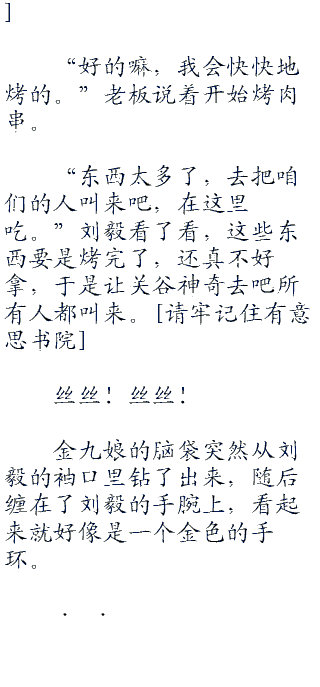 ]
“好的嘛，我会快快地
烤的。”老板说着开始烤肉
串。
“东西太多了，去把咱
们的人叫来吧，在这里
吃。”刘毅看了看，这些东
西要是烤完了，还真不好
拿，于是让关谷神奇去吧所
有人都叫来。[请牢记住有意
思书院]
丝丝！丝丝！
金九娘的脑袋突然从刘
毅的袖口里钻了出来，随后
缠在了刘毅的手腕上，看起
来就好像是一个金色的手
环。
. .